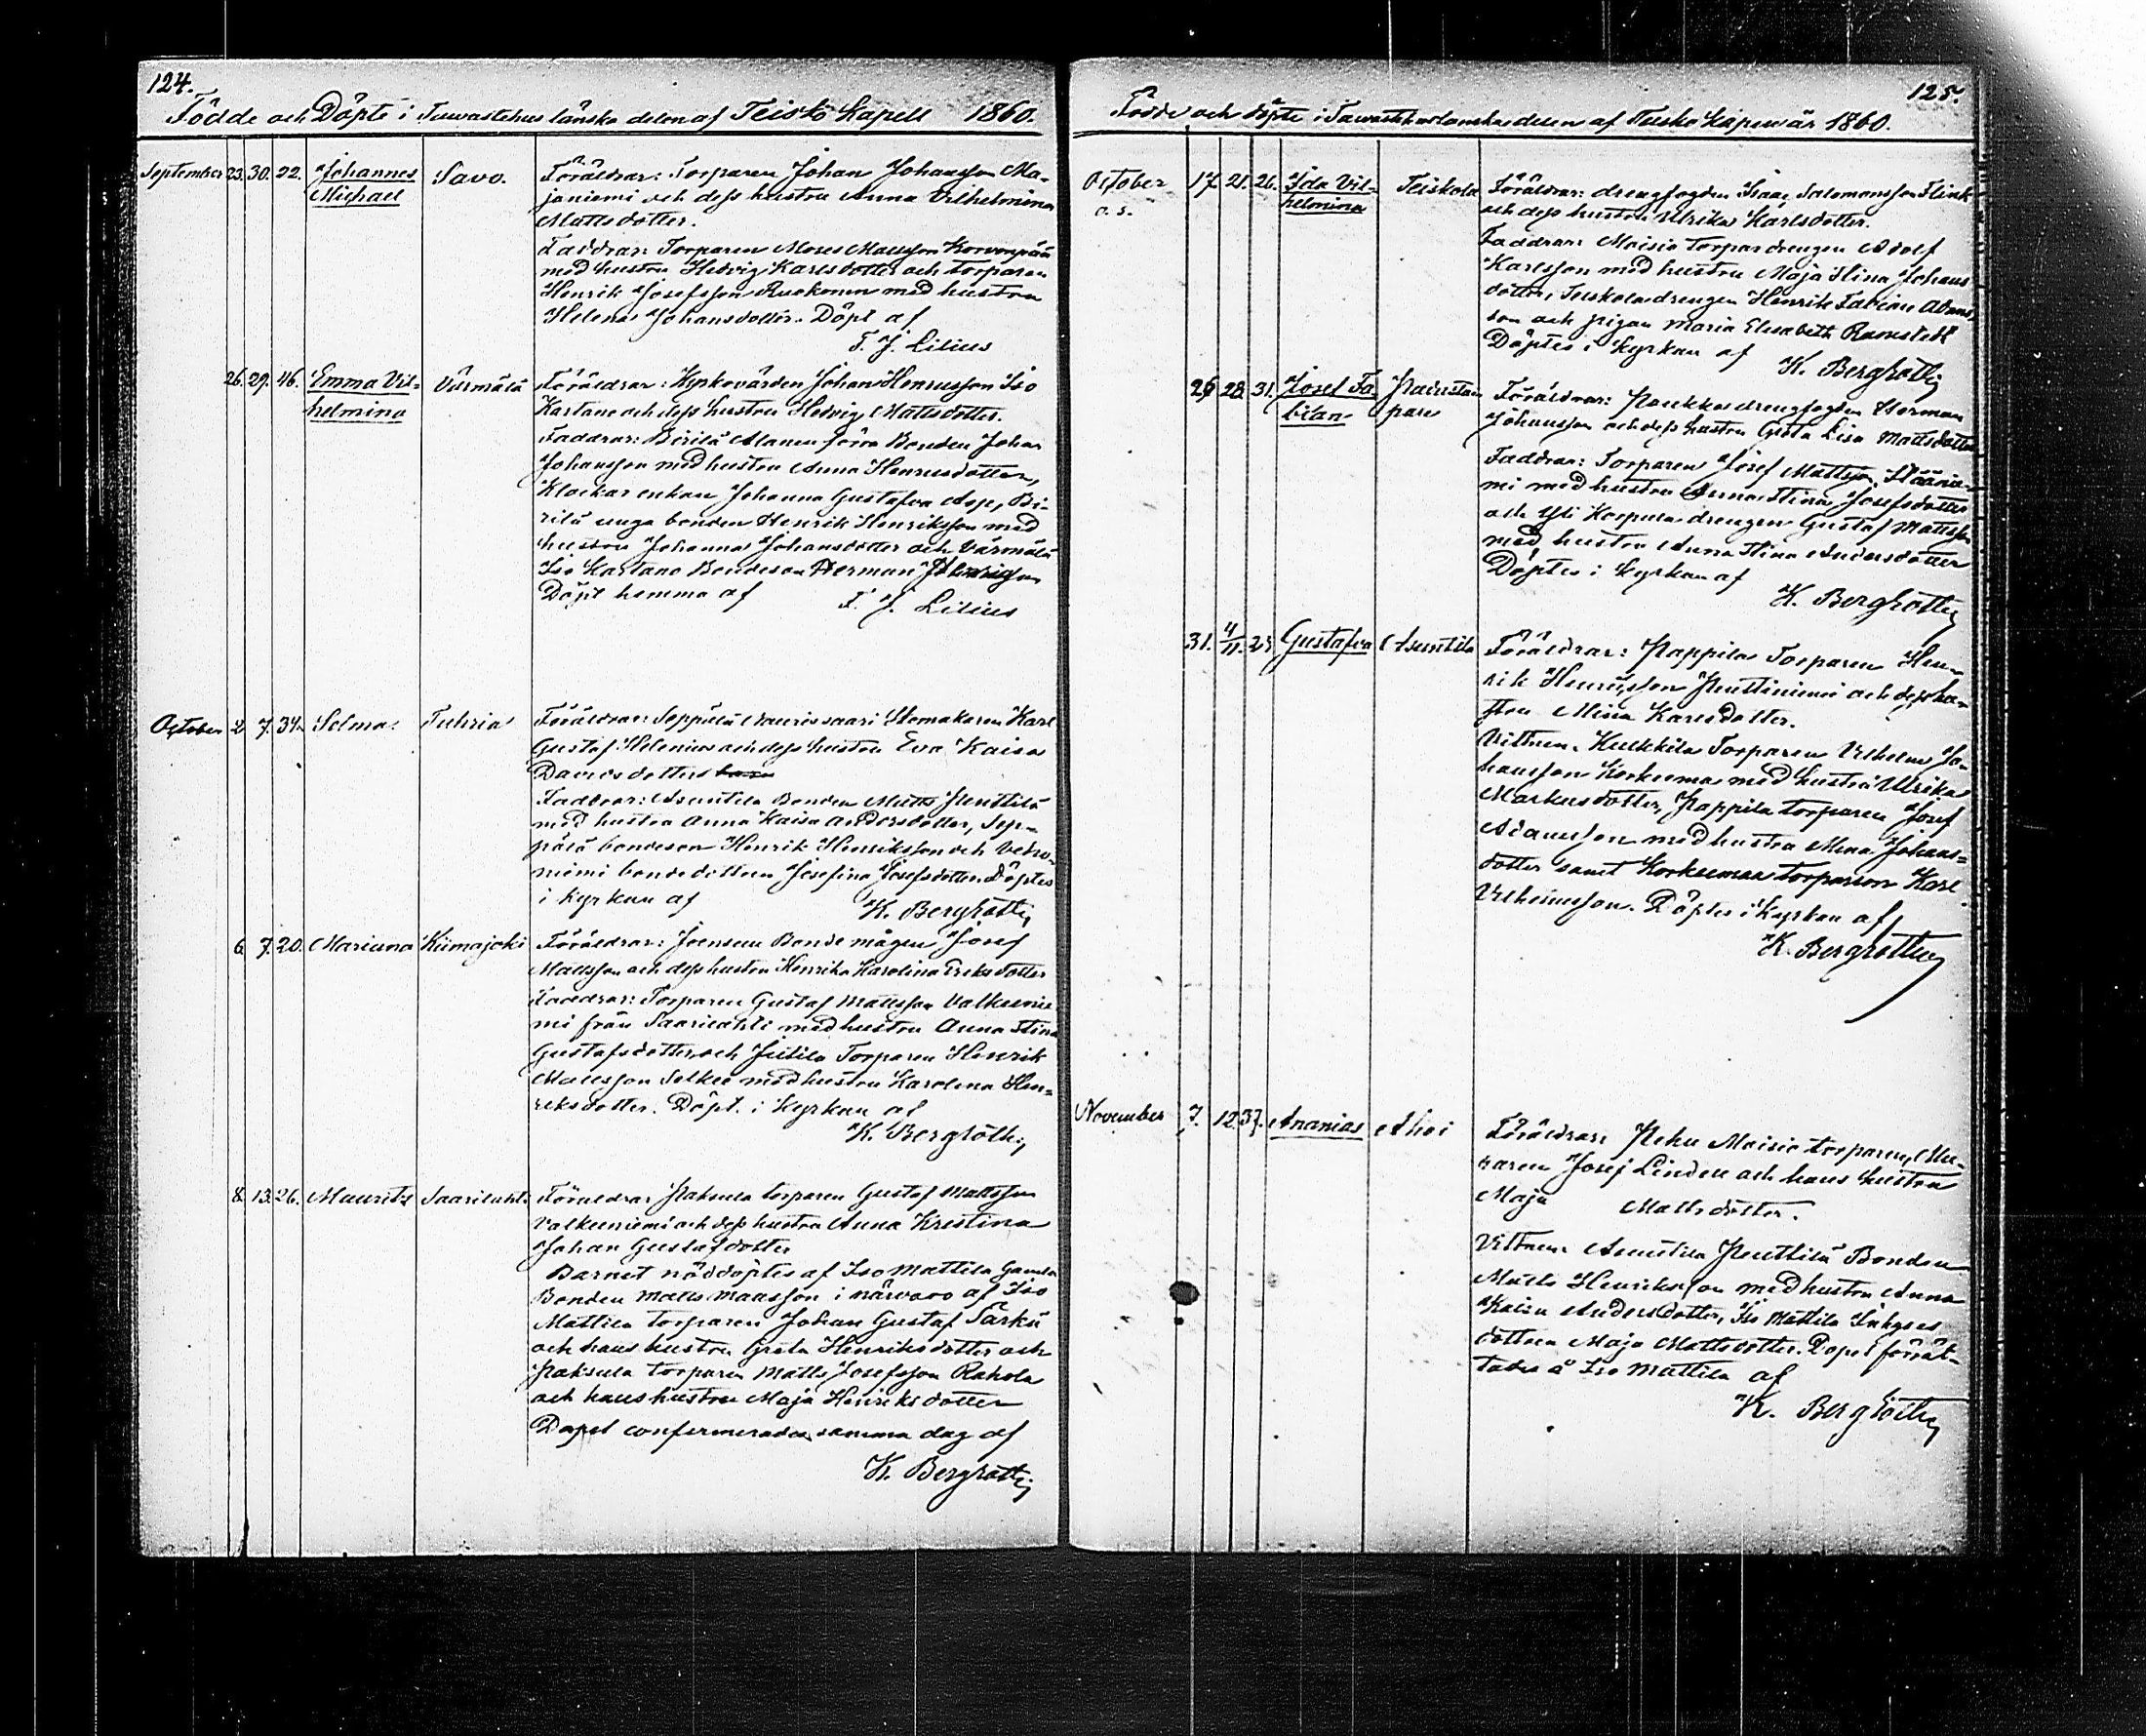 124.
Födde och Döpte i Tawastehus länska delen af Teisko Kapell 1860.
September 23. 30. 22. Johannes Michael Savo. Föräldrar: Torparen Johan Johansson Ma-
janiemi och dess hustru Anna Vilhelmina
Mattsdotter.
Faddrar: Torparen Moses Matsson Korvenpää
med hustru Hedvig Karlsdotter och torparen
Henrik Josefsson Ruokonen med hustru
Helena Johansdotter. Döpt af
F. J. Lilius
26. 29. 46. Emma Vil-
helmina Värmälä Föräldrar: Kyrkovärden Johan Henriksson Iso
Kartano och dess hustru Hedvig Mattsdotter.
Faddrar: Birilä Alanen förra Bonden Johan
Johansson med hustru Anna Henriksdotter,
Klockar enkan Johanna Gustafva Asp, Bi-
rilä unga bonden Henrik Henriksson med
hustru Johanna Johansdotter och Värmälä
Iso Kartano Bondeson Herman
Döpt hemma af F. J. Lilius
October 2. 7. 34. Selma Tuhria Föräldrar: Seppälä Naurissaari Skomakaren Karl
Gustaf Helenius och dess hustru Eva Kaisa
Davidsdotter
Faddrar: Asuntila Bonden Matts Penttilä
med hustru Anna Kaisa Andersdotter, Sep-
pälä bondeson Henrik Henriksson och
niemi bondedottren Josefina Josefsdotter. Döptes
i kyrkan af K. Bergroth
6. 7. 20. Mariana Kiimajoki Föräldrar: Joensuu Bonde mågen Josef
Mattsson och dess hustru Henrika Karolina Eriksdotter
Faddrar: Torparen Gustaf Mattsson Valkeenie
mi från Saarilahti med hustru Anna Stina
Gustafsdotter och Jutila Torparen Henrik
Mattsson Selkee med hustru Karolina Hen-
riksdotter. Döpt. i Kyrkan af
K. Bergroth
8. 13. 26. Maurits Saarilahti Föräldrar Paksula torparen Gustaf Mattsson
Valkeeniemi och dess hustru Anna Kristina
Johan Gustafsdotter
Barnet nöddöptes af Iso Mattila gamla
Bonden Matts Maasson i närvaro af Iso
Mattila torparen Johan Gustaf Särki
och hans hustru Greta Henriksdotter och
Paksula torparen Matts Josefsson Rahola
och hans hustru Maja Henriksdotter
Dopet confirmerades samma dag af
K. Bergroth
125.
Födde och döpte i Tawastehuslänska delen af Teisko Kapell år 1860.
October 17. 21. 26. Ida Vil-
helmina Teiskola Föräldrar: drengfogden Isaac Salomonsson Flink
och dess hustru Ulrika Karlsdotter.
Faddrar: Moisio torpardrengen Adolf
Karlsson med hustru Maja Stina Johans
dotter, Teiskola drengen Henrik Fabian Adams
son och pigan Maria Elisabeth Ramstedt
Döptes i kyrkan af K. Bergroth
28. 31. Josef Fa-
bian Föräldrar: Paukku drengfogden Herman
Johansson och dess hustru Greta Lisa Mattsdotter
Faddrar: Torparen Josef Mattsson Häänie-
mi med hustru Anna Stina Josefsdotter
och Yli Korpula drengen Gustaf Mattsson
med hustru Anna Stina Andersdotter
Döptes i kyrkan af
K. Bergroth
31. 4/11. 25 Gustafva Asuntila Föräldrar: Pappila Torparen Hen-
rik Henriksson Penttiniemi och dess hu-
stru Mina Karlsdotter.
Vittnen. Kulkkila Torparen Vilhelm Jo-
hansson Korkeema med hustru Ulrika
Markusdotter, Pappila torparen Josef
Adamsson med hustru Mina Johans-
dotter samt Korkeemaa torparson Karl
Vilhelmsson. Döptes i kyrkan af
K. Bergroth
November 7. 12. 37. Ananias Ahoi Föräldrar: Pehu Moisio torparen, Mu-
raren Josef Linden och hans hustru
Maja Mattsdotter.
Vittnen. Asuntila Penttilä Bonden
Matts Henriksson med hustru Anna
Kaisa Andersdotter, Iso Mattila Inhyses
dottren Maja Mattsdotter. Dopet förrät-
tades å Iso Mattila af
K. Bergroth